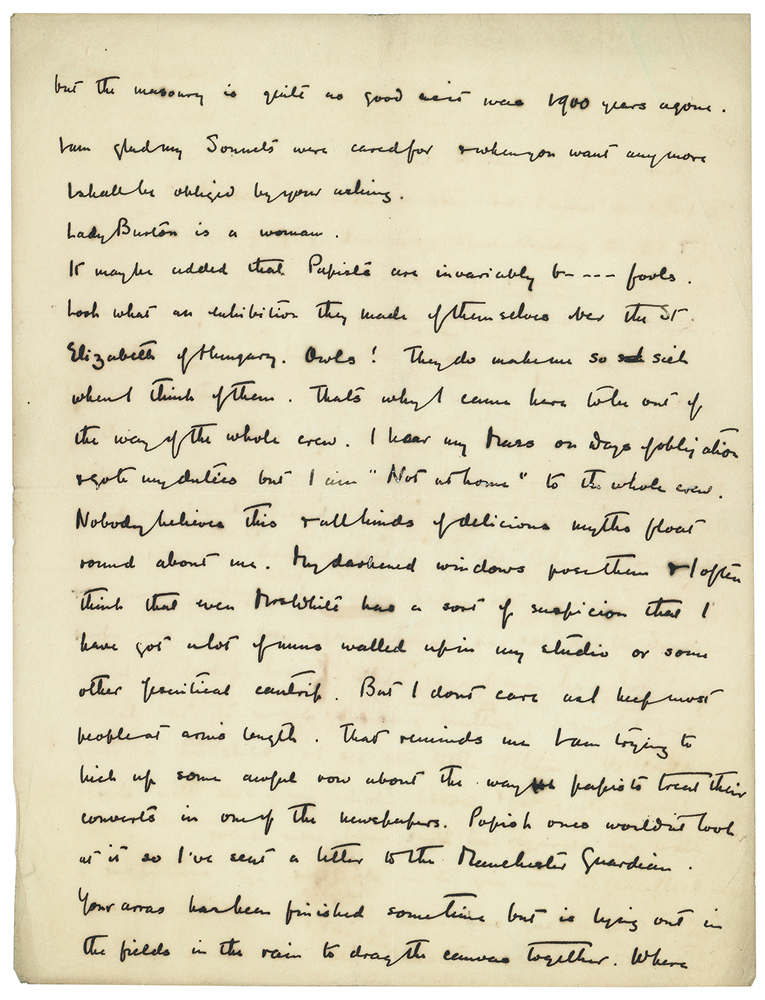 but the masonry is quite as good as it was 1900 years agone.
I am glad my Sonnets were cared for & when you want any more
I shall be obliged by your asking.
Lady Burton is a woman.
It may be added that Papists are invariably b---- fools.
Look what an exhibition they made of themselves over the St.
Elizabeth of Hungary. Owls! They do make me so sick
when I think of them. That's why I came here to be out of
the way of the whole crew. I hear my Mass on days of obligation
& go to my duties but I am "Not at home" to the whole crew.
Nobody believes this & all kinds of delicious myths float
round about me. My darkened windows pose them & I often
think that even Mrs White has a sort of suspicion that I
have got a lot of nuns walled up in my studio or some
other Jesuitical cantrip. But I dont care as I keep most
people at arm's length. That reminds me I am trying to
kick up some awful row about the way papists treat their
converts in one of the newspapers. Popish ones wouldn't look
at it so I've sent a letter to the Manchester Guardian.
Your arras has been finished sometime but is lying out in
the fields in the rain to drag the canvas together. Where